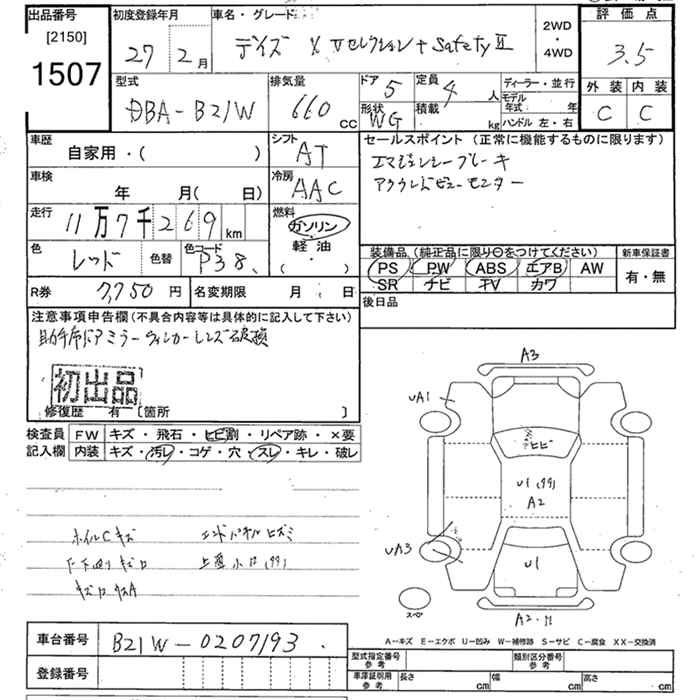 出品番号
[2150]
1507
初度登録年月
27 2月
車名・グレード
デイズ X Vセレクション+SafetyⅡ
2WD
・
4WD
評価点
3.5
外装 内装
C C
型式
DBA-B21W
排気量
660 CC
ドア 5
形状 WG
定員 4 人
積載 kg
ディーラー・並行
モデル年式 年
ハンドル 左・右
車歴
自家用・( )
シフト
AT
車検
年 月( 日)
冷房
AAC
走行
11万7千269 km
燃料
ガソリン
軽油
( ・ )
色
レッド
色替
色コード
P38
R券 7,750円
名変期限 月 日
セールスポイント (正常に機能するものに限ります)
エマージェンシーブレーキ
アラウンドビューモニター
装備品 (純正品に限り○をつけてください)
PS PW ABS エアB AW
SR ナビ TV カワ
新車保証書
有・無
後日品
注意事項申告欄 (不具合内容等は具体的に記入して下さい)
助手席ドアミラーウィンカーレンズ破損
初出品
修復歴 有 [箇所 ]
検査員
記入欄
FW キズ・飛石・ヒビ割・リペア跡・×要
内装 キズ・汚レ・コゲ・穴・スレ・キレ・破レ
ホイルCキズ
エンドパネルヒズミ
A3
UA1
ヒビ
U1
A2
UA3
U1
スペア
A2
A-キズ E-エクボ U-凹み W-補修跡 S-サビ C-腐食 XX-交換済
車台番号 B21W-0207193
登録番号
型式指定番号
参考
類別区分番号
参考
車庫証明用
参考
長さ cm
幅 cm
高さ cm